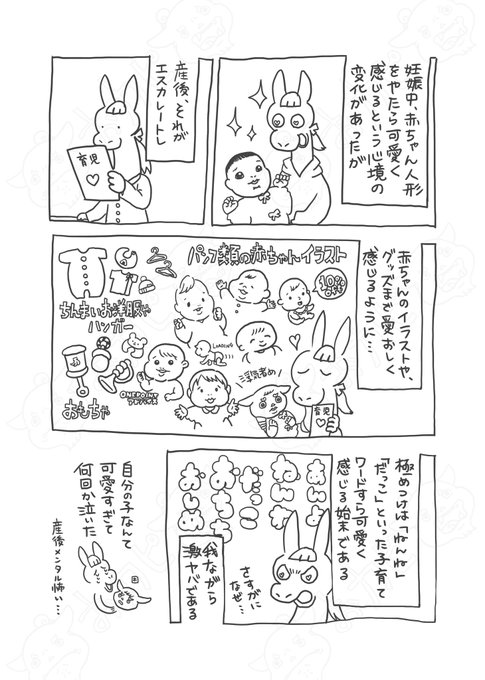 妊娠中、赤ちゃん人形
をやたら可愛く
感じるという心境の
変化があったが
産後、それが
エスカレートし
育児
赤ちゃんのイラストや、
グッズまで愛おしく
感じるように…
パンフ類の赤ちゃんイラスト
10%
ちんまいお洋服や
ハンガー
LOADING
ONEPOINT
浮気者め!
おもちゃ
育児
極めつけは「ねんね」
「だっこ」といった子育て
ワードすら可愛く
感じる始末である
さすがに
なぜ…
我ながら
激ヤバである
自分の子なんて
可愛すぎて
何回か泣いた
産後メンタル怖い…